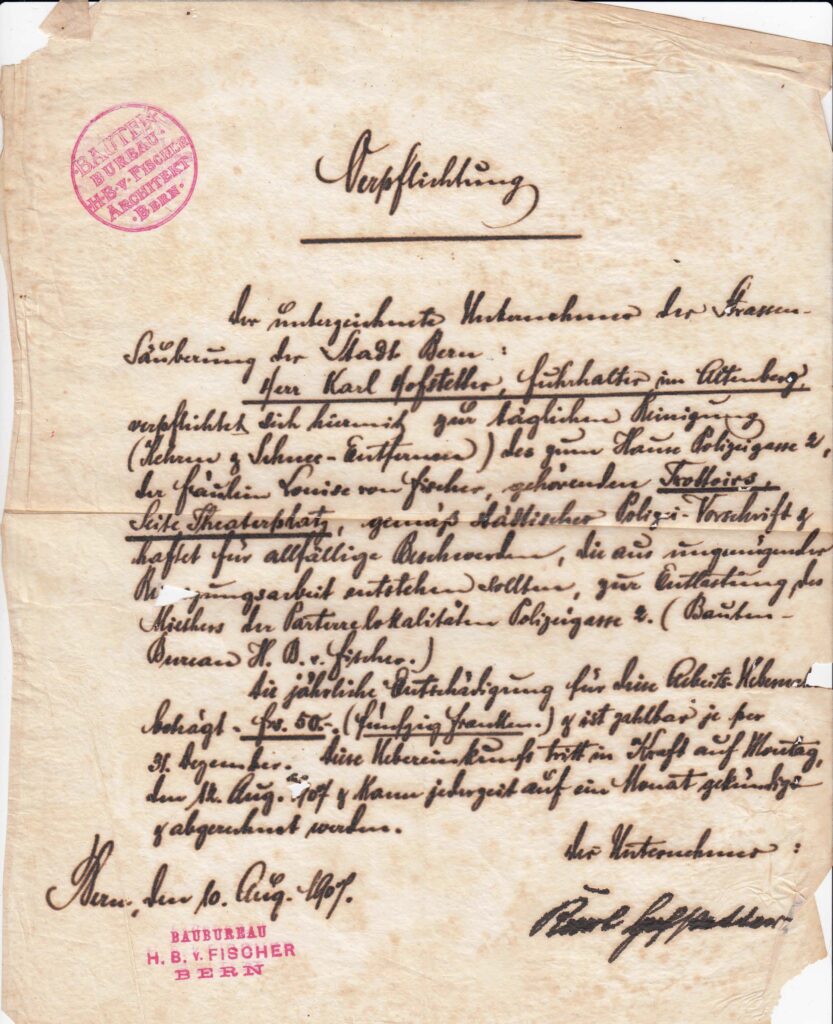 BAUTEN
BUREAU
H.B.v.FISCHER
ARCHITEKT
BERN.
Verpflichtung
Der unterzeichnete Unternehmer der Strassen-
Säuberung der Stadt Bern :
Herr Karl Hofstetter, Fuhrhalter im Altenberg,
verpflichtet sich hiermit zur täglichen Reinigung
(Kehren & Schnee-Entfernen) des zum Hause Polizeigasse 2,
der Fräulein Louise von Fischer, gehörenden Trottoirs,
Seite Theaterplatz, gemäß städtischer Polizei-Vorschrift &
haftet für allfällige Beschwerden, die aus ungenügender
Reinigungsarbeit entstehen sollten, zur Entlastung des
Miethers der Parterrelokalitäten Polizeigasse 2. (Bauten-
Bureau H. B. v. Fischer.)
Die jährliche Entschädigung für diese Arbeits-
beträgt - frs. 50.-. (fünfzig Franken.) & ist zahlbar je per
31. Dezember. Diese Uebereinkunft tritt in Kraft auf Montag,
den 12. Aug. 107 & kann jederzeit auf ein Monat gekündigt
& abgerechnet werden.
Der Unternehmer :
Bern, den 10. Aug. 1907.
Karl Hofstetter
BAUBUREAU
H. B. v. FISCHER
BERN